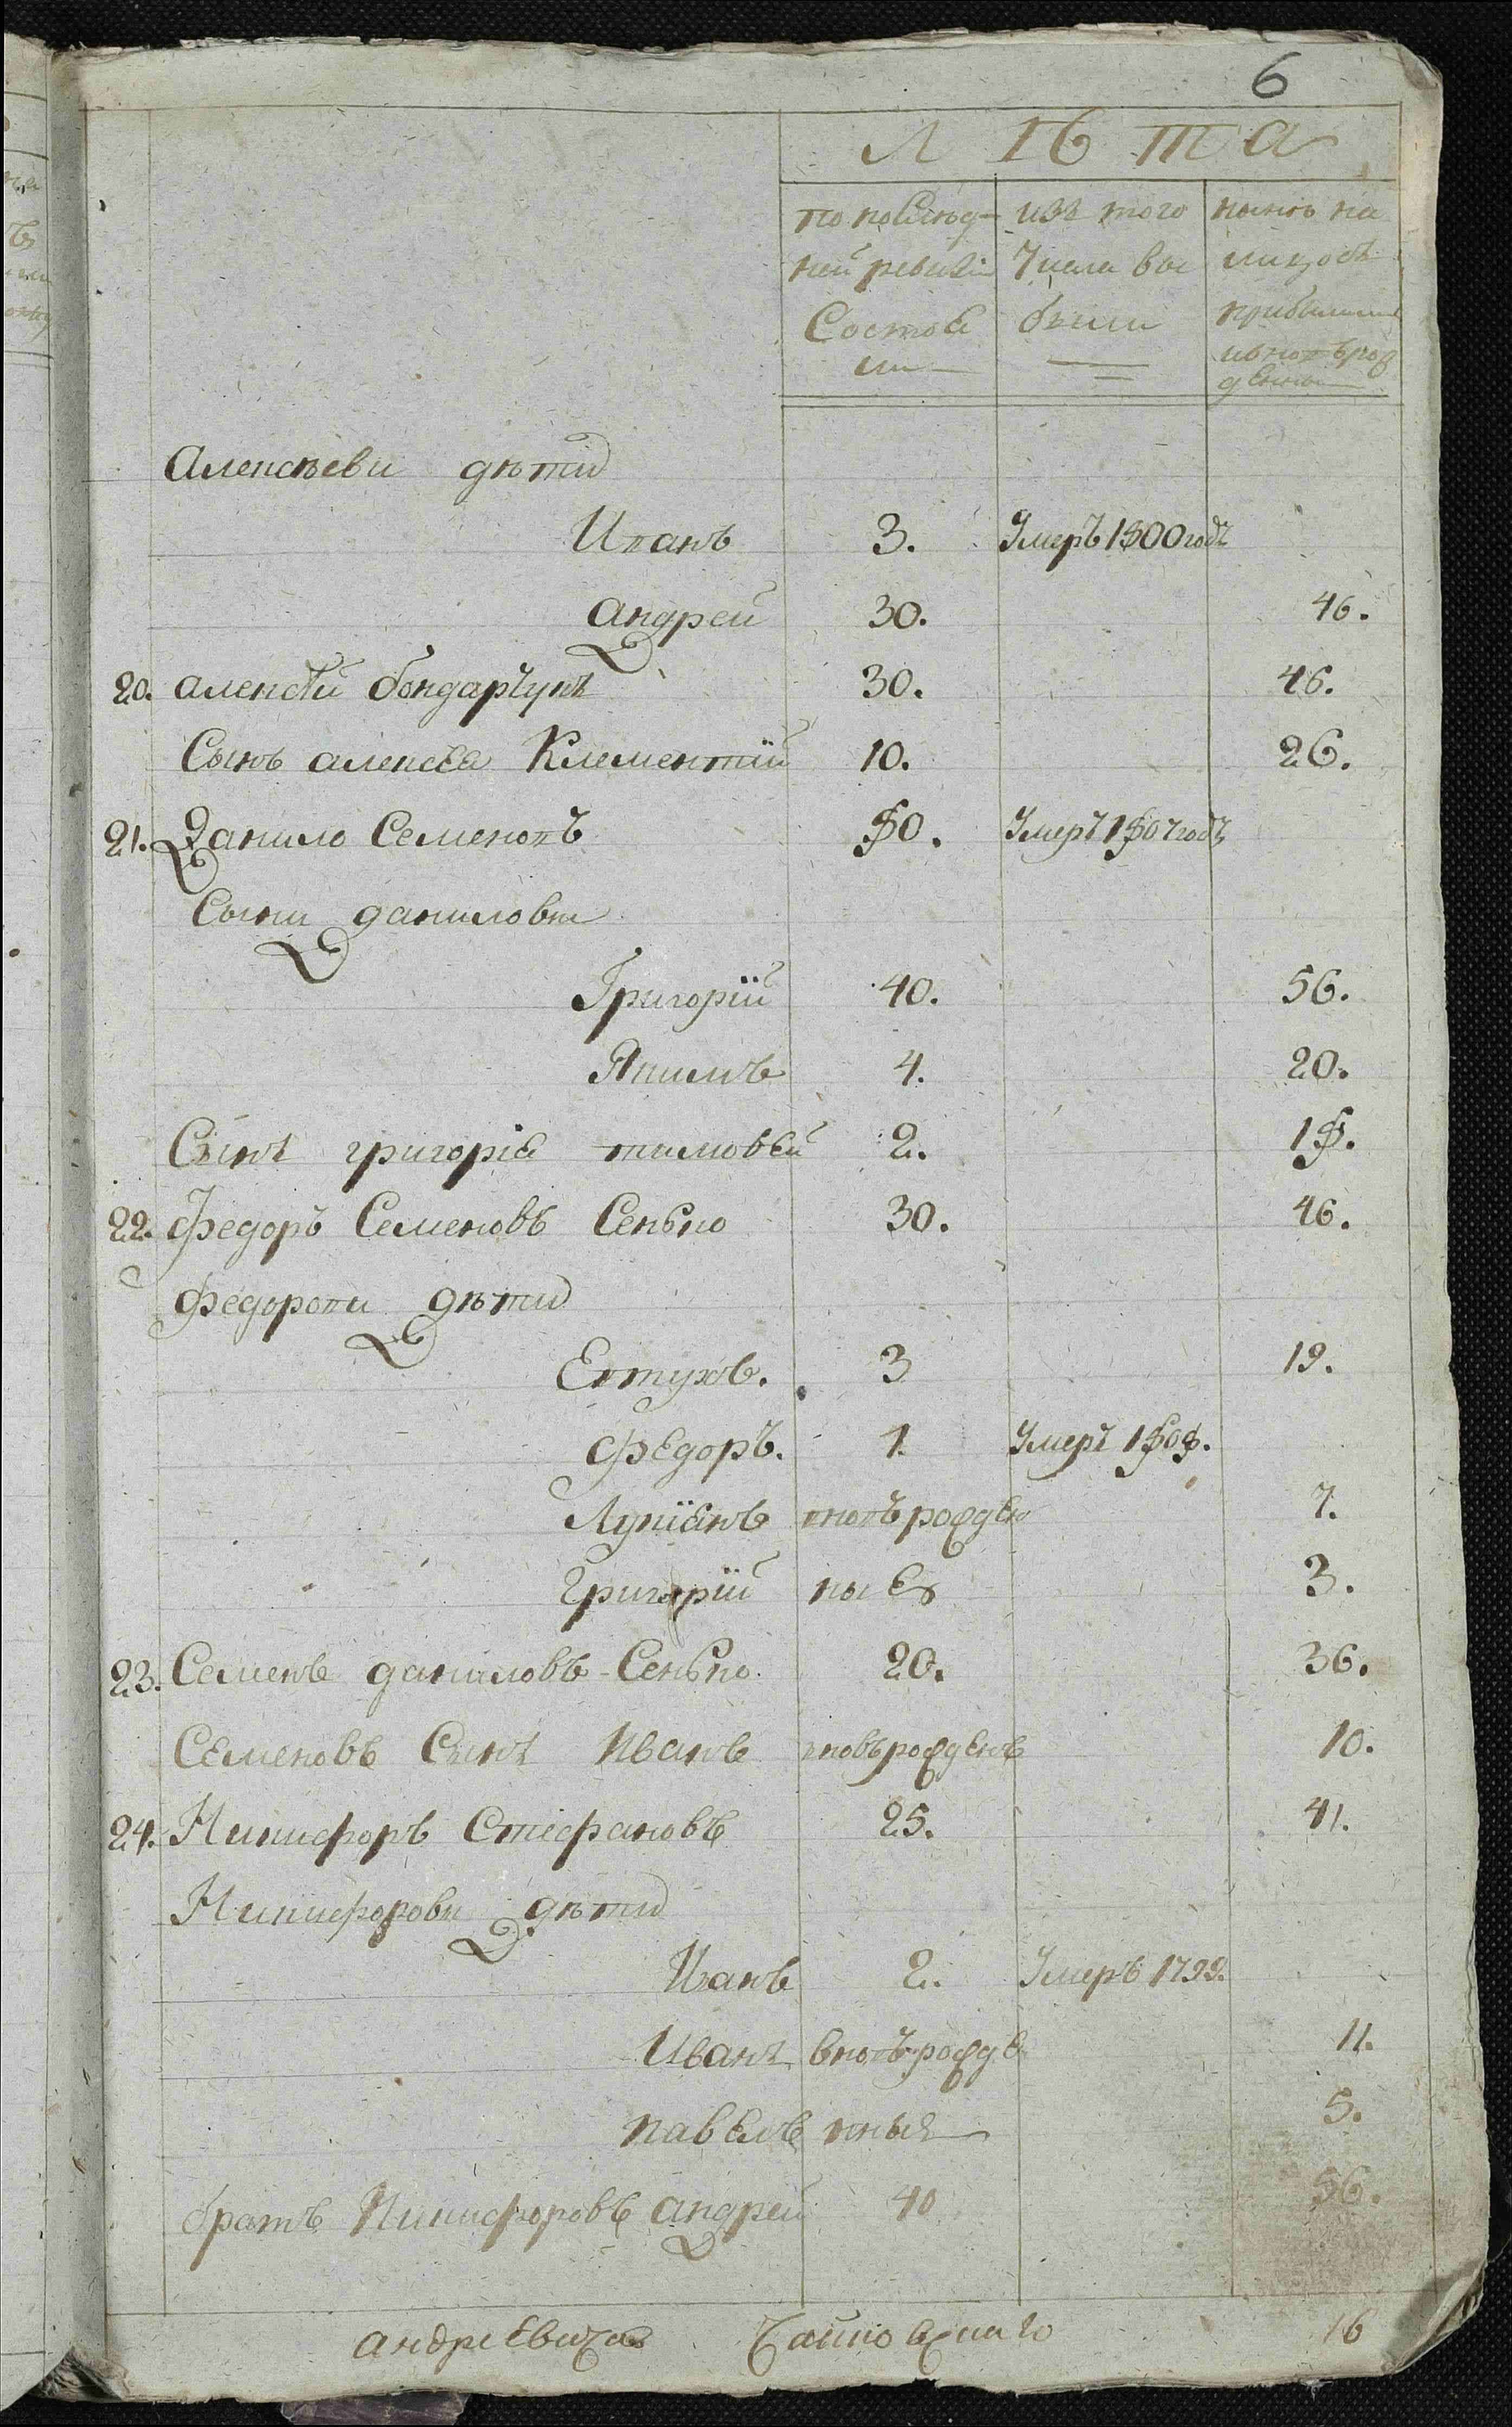 6
Лѣта
по послѣд- изъ того нынѣ на
ней ревизіи числа вы лицо съ
состоя были прибылыми
ли и вновь рож
денны
Алексѣеви дѣти
Иванъ 3. Умеръ 1800 годъ
Андрей 30. 46.
20. Алексѣй бондарчукъ 30. 46.
Сынъ алексѣя Климентий 10. 26.
21. Данило Семеновъ 80. Умеръ 1807 годъ
Сыны даниловы
Григорїй 40. 56.
Якимъ 4. 20.
Сынъ григорія тимовей 2. 18.
22. Федоръ Семеновъ Сенько 30. 46.
Федорови дѣти
Евтухъ. 3 19.
Федоръ. 1. Умеръ 1808.
Лукїянъ вновъ рожден 7.
Григорїй ные 3.
23. Семенъ даниловъ Сенько. 20. 36.
Семеновъ Сынъ Иванъ вновъ рожденъ 10.
24. Никифоръ Стефановъ 25. 41.
Никифорови дѣти
Иванъ 2. Умеръ 1799.
Иванъ вновъ рожде 11.
павелъ нныя 5.
братъ Никифоровъ андрей 40 56.
андреевича 16